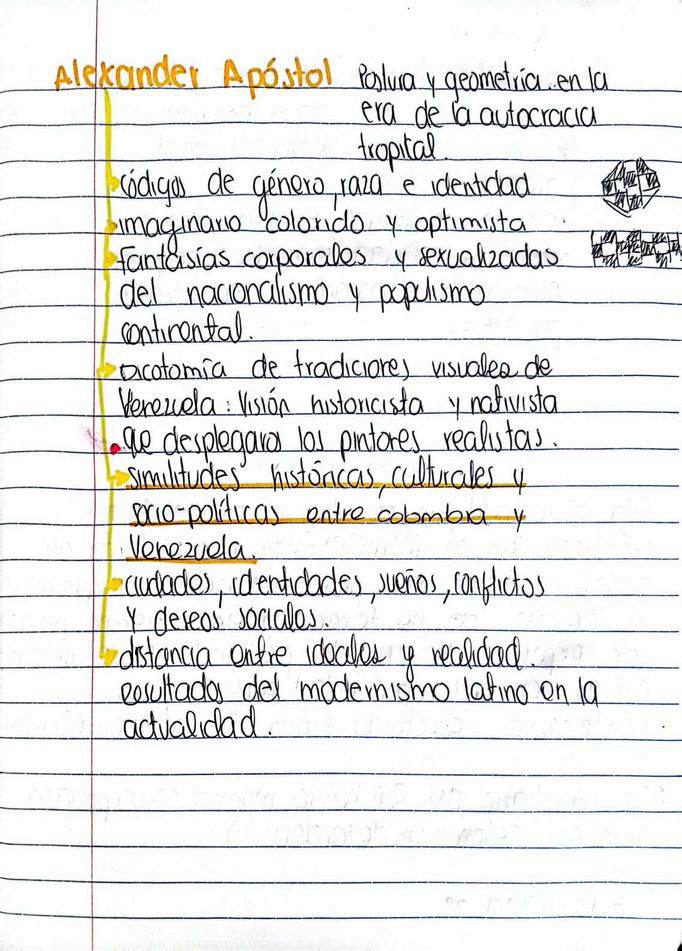 Alexander Apóstol Postura y geometría en la
era de la autocracia
tropital.
códigos de género, raza e identidad
imaginario colorido y optimista
fantasías corporales y sexualizadas
del nacionalismo y populismo
continental.
Dicotomía de tradiciones visuales de
Venezuela: Visión historicista y nativista
que desplegaros los pintores realistas.
similitudes históricas, culturales y
socio-políticas entre colombia y
Venezuela.
ciudades, identidades, sueños, conflictos
y deseos sociales.
distancia entre ideales y realidad.
Resultados del modernismo latino en la
actualidad.